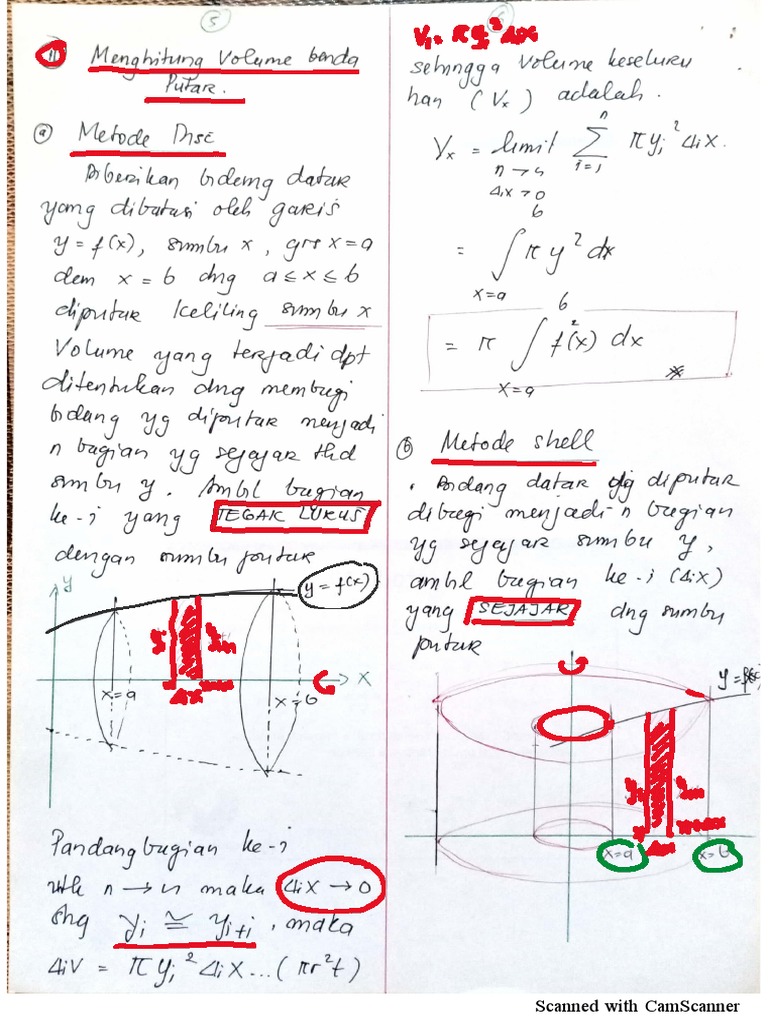 5
II Menghitung Volume benda
Putar.
a Metode Disc
Diberikan bidang datar
yang dibatasi oleh garis
y = f(x), sumbu x, grs x = a
dan x = b dng a ≤ x ≤ b
diputar keliling sumbu x
Volume yang terjadi dpt
ditentukan dng membagi
bidang yg diputar menjadi
n bagian yg sejajar thd
sumbu y. Ambl bagian
ke-i yang TEGAK LURUS
dengan sumbu putar
y
y = f(x)
x
x = a
x = b
Δx
Pandang bagian ke-i
utk n → ∞ maka ΔiX → 0
shg yi ≅ yi+i, maka
ΔiV = π yi² ΔiX ... (πr²t)
6
Vi = π yi² Δix
sehingga Volume keseluru
han (Vx) adalah.
Vx = limit Σ π yi² Δix.
n
i=1
n → ∞
Δix → 0
= ∫ π y² dx
b
x=a
= π ∫ f²(x) dx
b
x=a
b Metode shell
. Bidang datar yg diputar
dibagi menjadi n bagian
yg sejajar sumbu y,
ambl bagian ke-i (Δix)
yang SEJAJAR dng sumbu
putar
y = f(x)
yi
x=a
Δx
x=b
Scanned with CamScanner